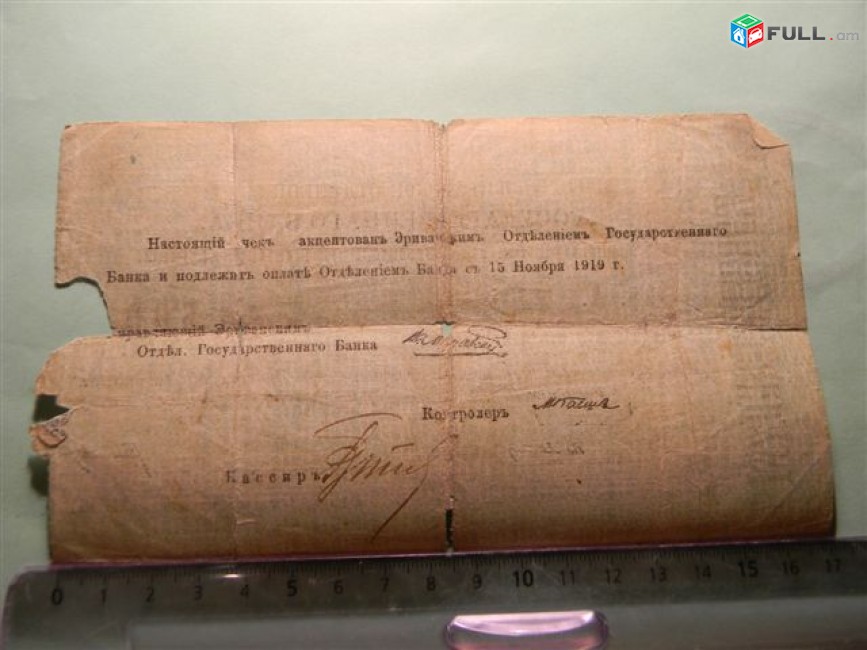 FULL.am
Настоящій чекъ акцептованъ Эриванскимъ Отдѣленіемъ Государственнаго
Банка и подлежитъ оплатѣ Отдѣленіемъ Банка съ 15 Ноября 1919 г.
Управляющій Эриванскимъ
Отдѣл. Государственнаго Банка
Контролеръ
Кассиръ
0 1 2 3 4 5 6 7 8 9 10 11 12 13 14 15 16 17